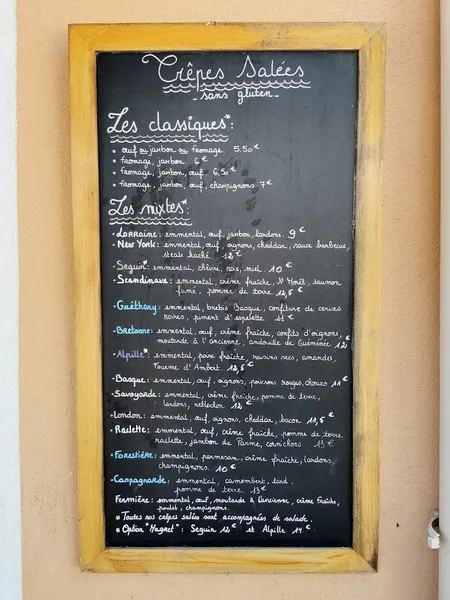 Crêpes Salées
- sans gluten -
Les classiques* :
• œuf ou jambon ou fromage 5.50€
• fromage, jambon 6€
• fromage, jambon, œuf 6,50€
• fromage, jambon, œuf, champignons 7€
Les mixtes* :
• Lorraine : emmental, œuf, jambon, lardons. 9€
• New York : emmental, œuf, oignons, cheddar, sauce barbecue,
steak haché 12€
• Seguin* : emmental, chèvre, noix, miel 10€
• Scandinave : emmental, crème fraîche, St Morêt, saumon
fumé, pomme de terre. 12,5€
• Guéthary : emmental, brebis Basque, confiture de cerises
noires, piment d'espelette 11€
• Bretonne : emmental, œuf, crème fraîche, confits d'oignons,
moutarde à l'ancienne, andouille de Guéménée 12€
• Alpille* : emmental, poire fraîche, raisins secs, amandes,
Fourme d'Ambert. 12,5€
• Basque : emmental, œuf, oignons, poivrons rouges, chorizo 11€
• Savoyarde : emmental, crème fraîche, pomme de terre,
lardons, reblochon 12€
• London : emmental, œuf, oignons, cheddar, bacon 11,5€
• Raclette : emmental, œuf, crème fraîche, pomme de terre
raclette, jambon de Parme, cornichons 13€
• Forestière : emmental, parmesan, crème fraîche, lardons,
champignons. 10€
• Campagnarde : emmental, camembert, lard,
pomme de terre. 13€
Fermière : emmental, œuf, moutarde à l'ancienne, crème fraîche,
poulet, champignons.
* Toutes nos crêpes salées sont accompagnées de salade.
* Option "Magret" : Seguin 12€ et Alpille 14€.